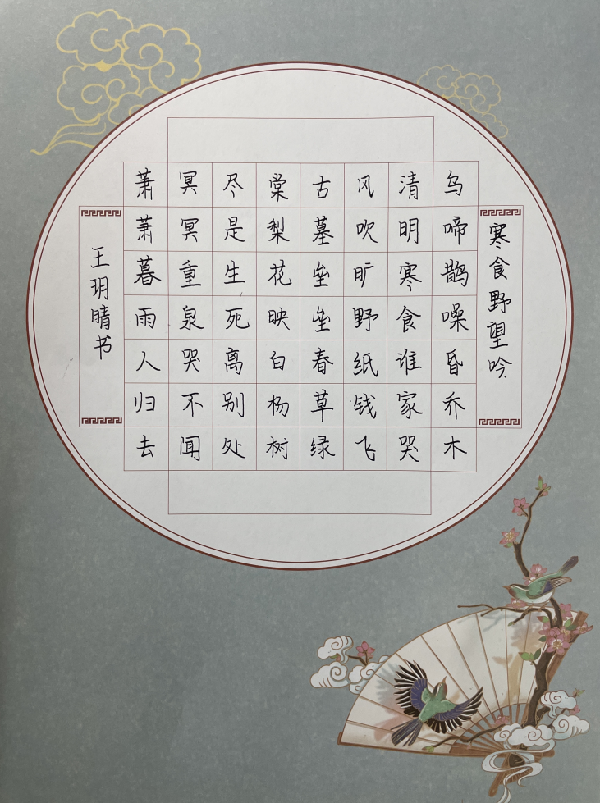 寒食野望吟
乌啼鹊噪昏乔木
清明寒食谁家哭
风吹旷野纸钱飞
古墓垒垒春草绿
棠梨花映白杨树
尽是生死离别处
冥冥重泉哭不闻
萧萧暮雨人归去
王玥晴书